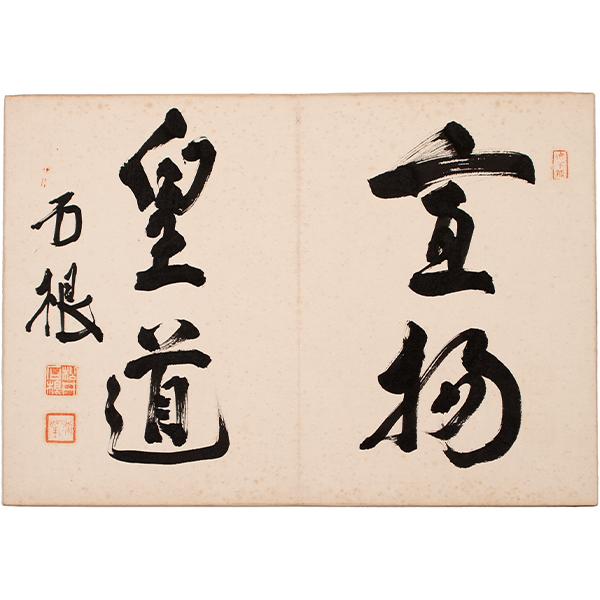 宣揚
皇道
石根